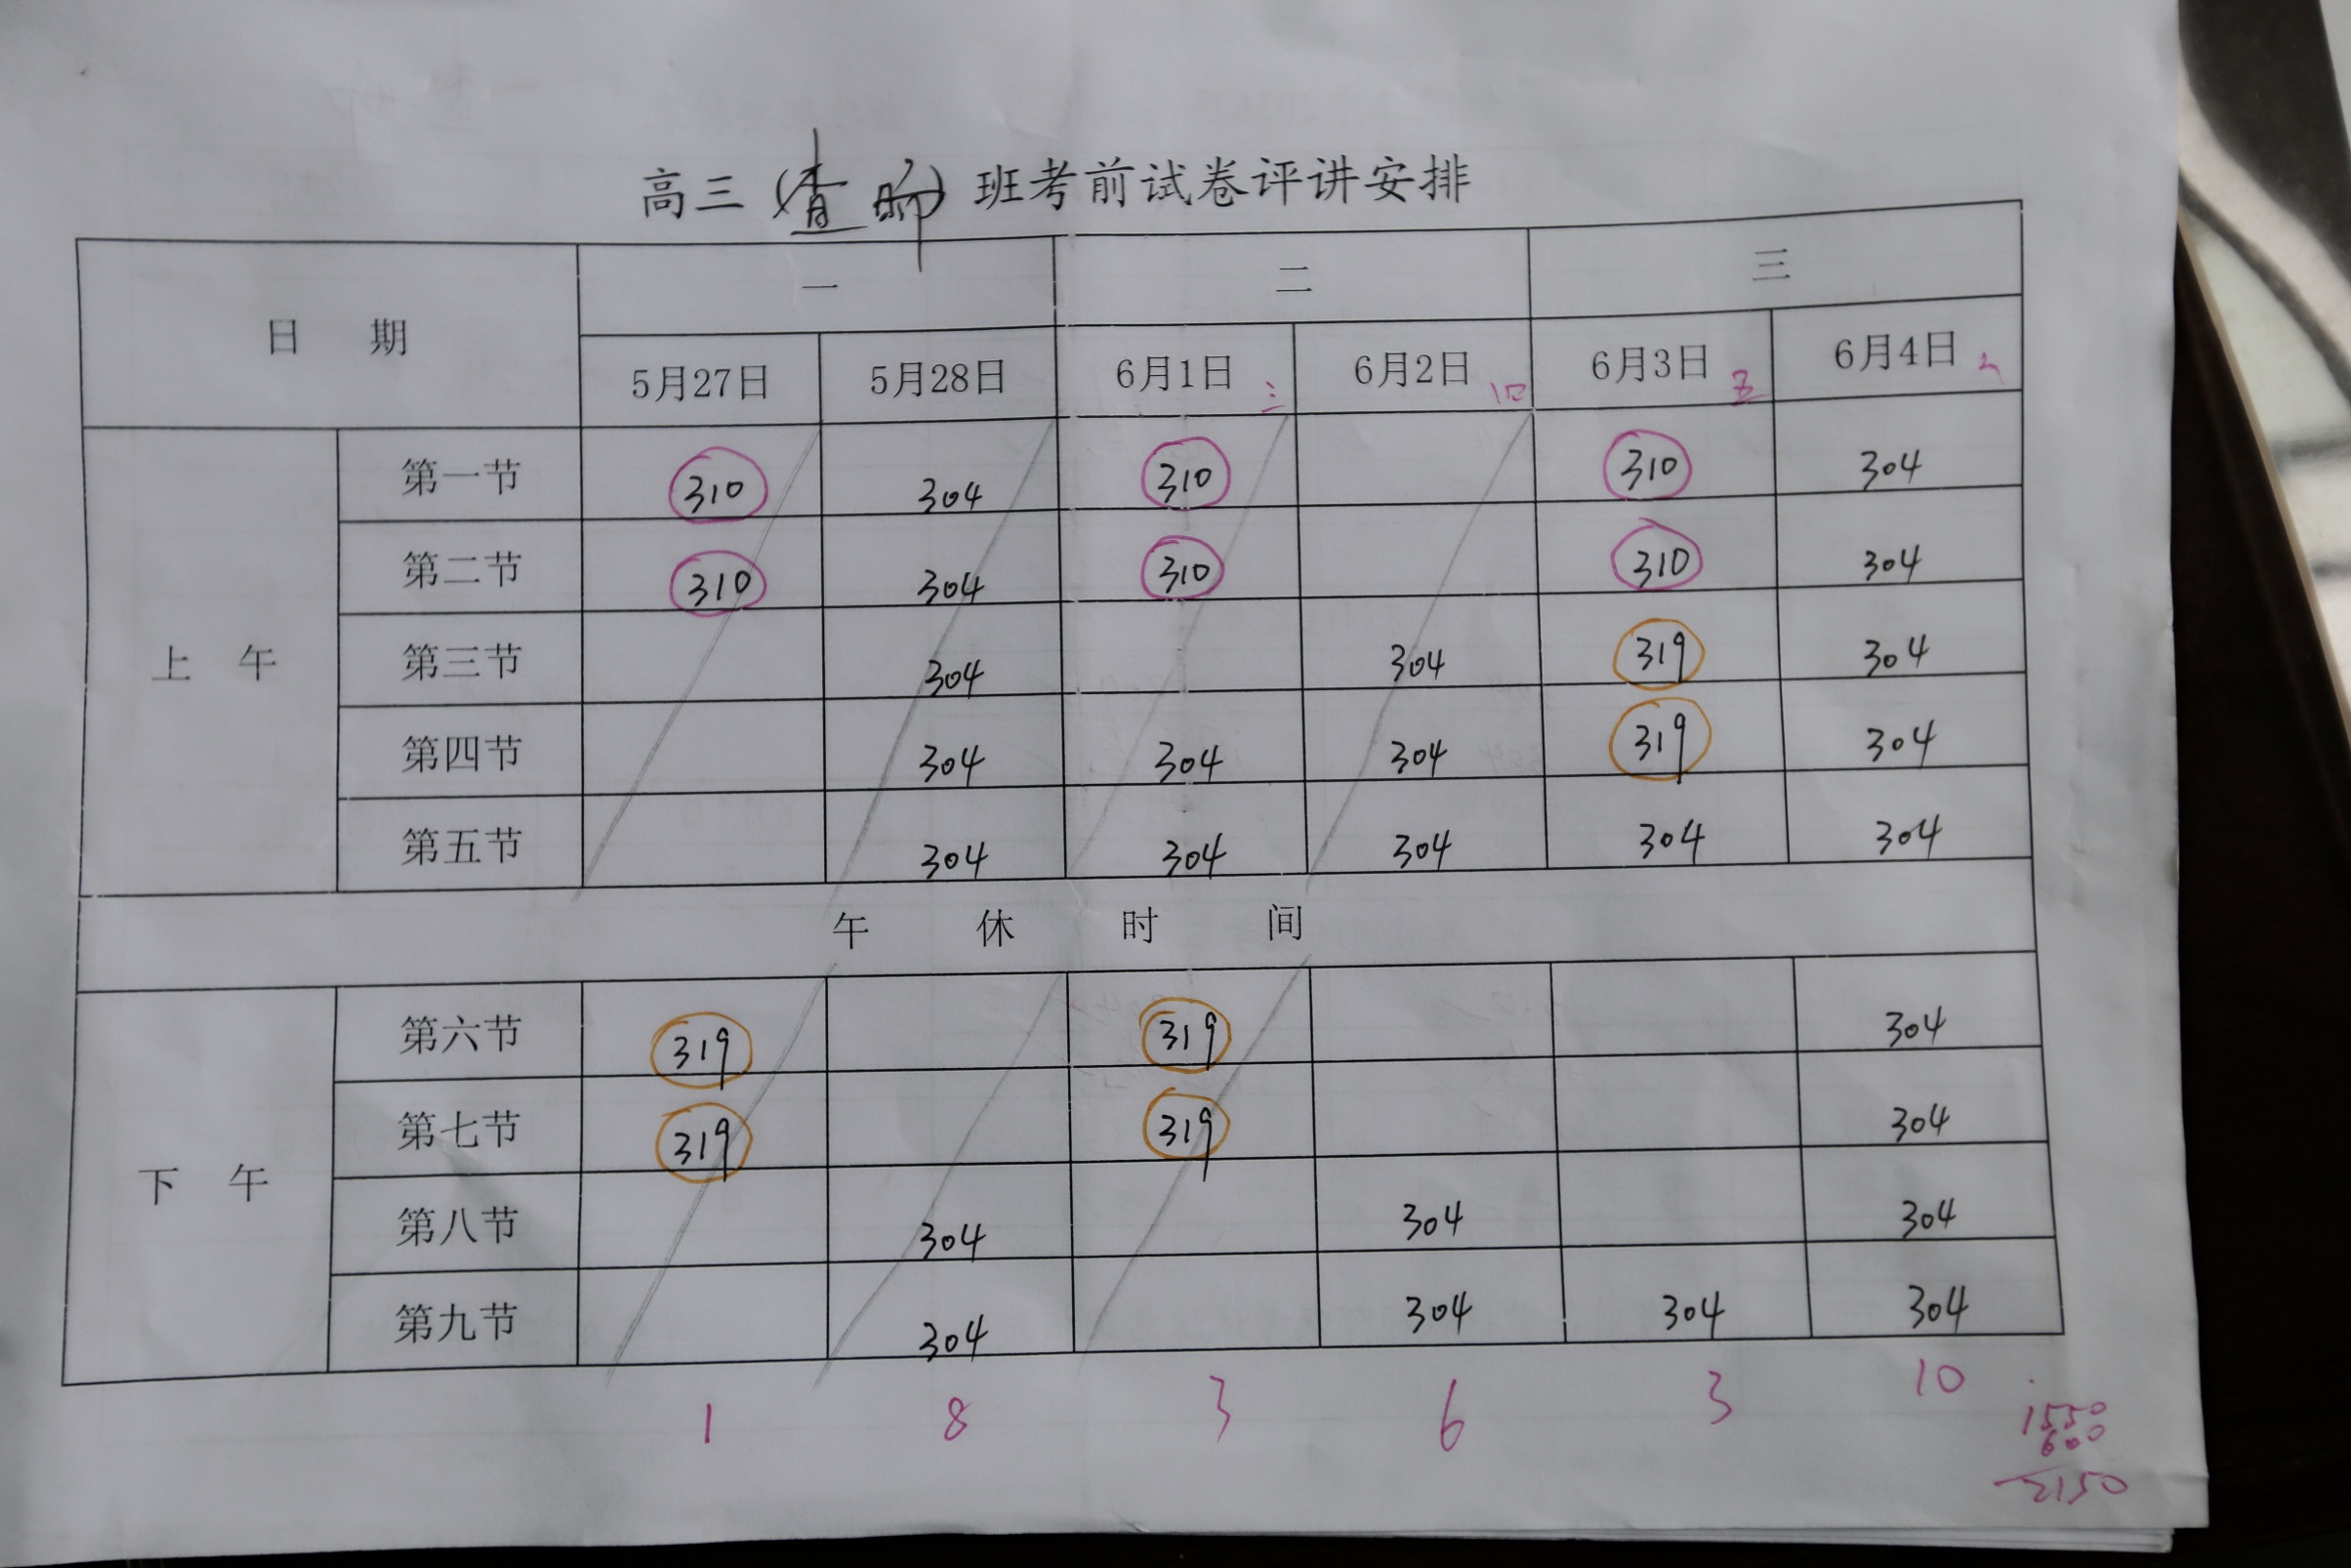 高三（查 ）班考前试卷评讲安排
日 期 一 二 三
5月27日 5月28日 6月1日 三 6月2日 四 6月3日 五 6月4日 六
上 午
第一节 310 304 310 310 304
第二节 310 304 310 310 304
第三节 304 304 319 304
第四节 304 304 304 319 304
第五节 304 304 304 304 304
午 休 时 间
下 午
第六节 319 319 304
第七节 319 319 304
第八节 304 304 304
第九节 304 304 304 304
1 8 3 6 3 10
1550
600
2150